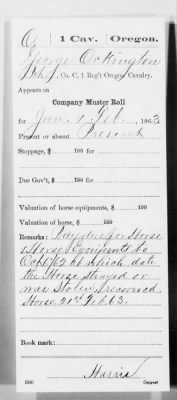 O | 1 Cav. | Oregon.
George Ockington
Pvt, Co. C, 1 Reg't Oregon Cavalry.
Appears on
Company Muster Roll
for Jan & Feb, 1863
Present or absent Present
Stoppage, $ 100 for
Due Gov't, $ 100 for
Valuation of horse equipments, $ 100
Valuation of horse, $ 100
Remarks: Pay due for Horse
& Horse Equipments to
Oct 6/62 at which date
the Horse strayed or
was Stolen, recovered
Horse 21st Feb. 63.
Book mark:
Harris
(358) Copyist.